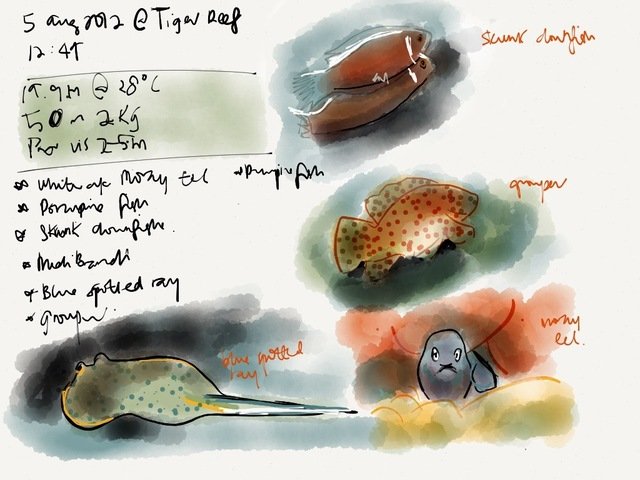 5 aug 2012 @ Tiger Reef
12:47
19.9M @ 28°C
50 m 2kg
Poor vis 2-5m
White eye Moray Eel
Porcupine fish
Porcupine fish
Skunk clownfish.
NudiBranch
Blue spotted ray
grouper
Skunk clownfish
grouper
blue spotted
ray
moray
eel.